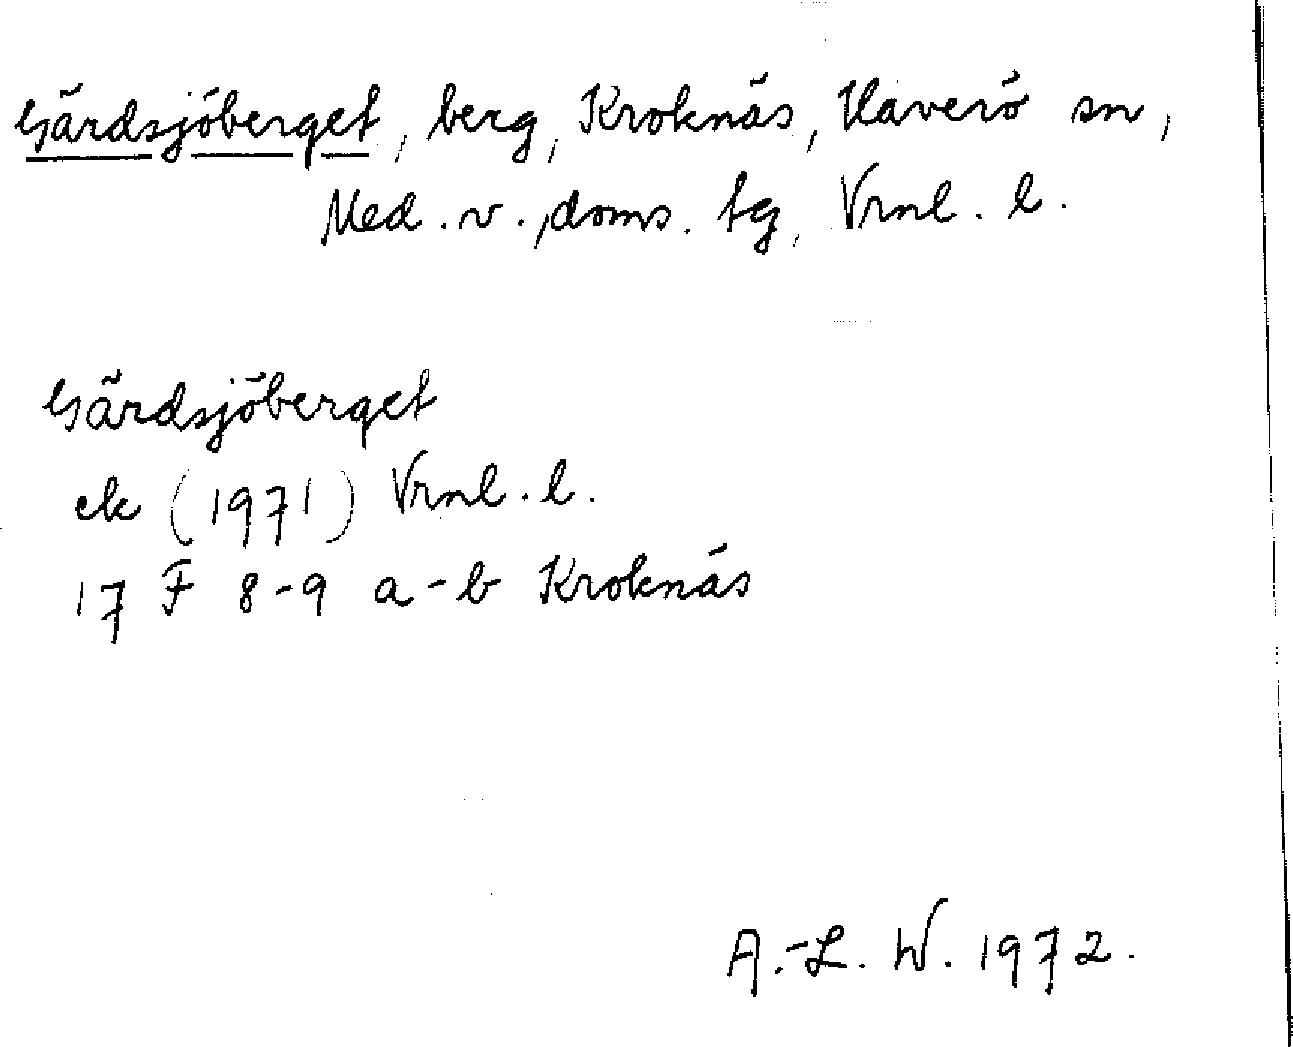 Gärdsjöberget, berg, Kroknäs, Haverö sn,
Med. v., doms. tg, Vrnl. l.
Gärdsjöberget
ek (1971) Vrnl. l.
17 F 8-9 a-b Kroknäs
A.-L. W. 1972.